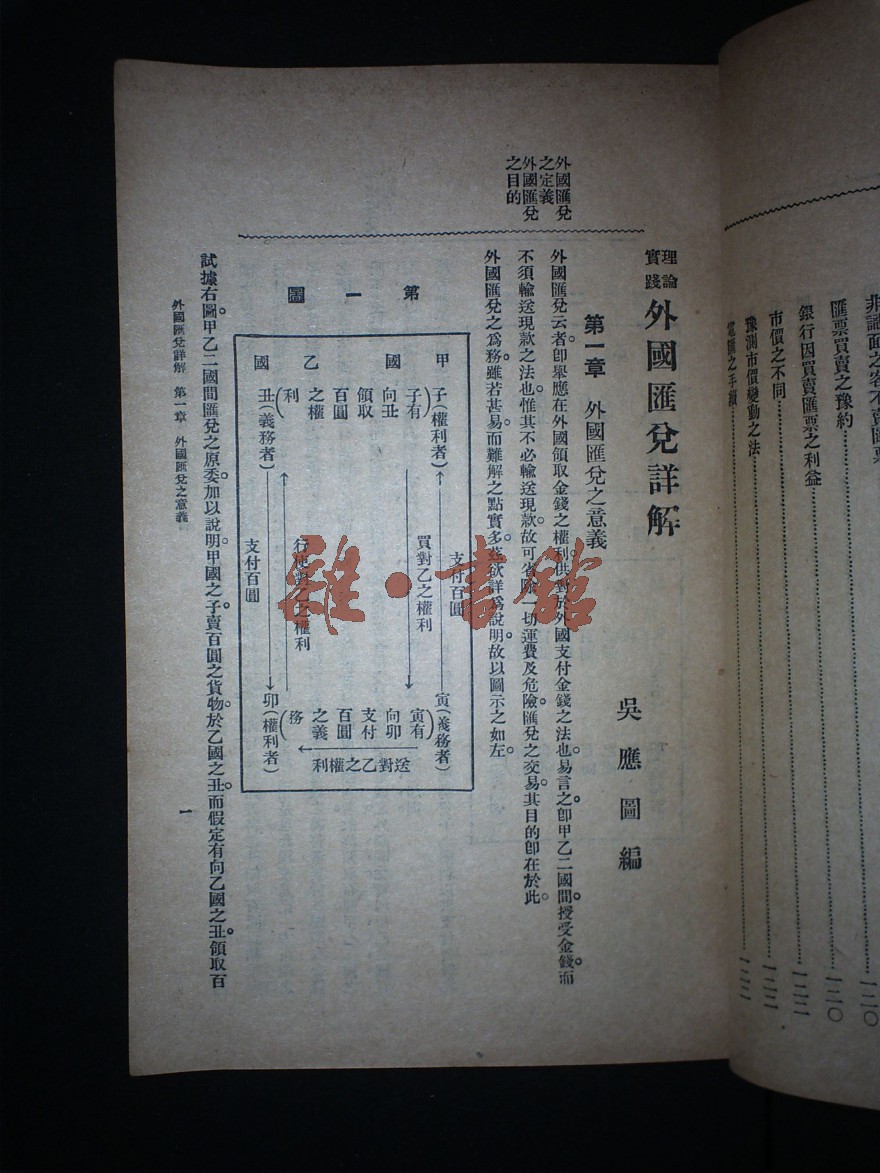 非識面之客不賣匯票
匯票買賣之豫約……一二〇
銀行因買賣匯票之利益……一二二
市價之不同……一二二
豫測市價變動之法……一二二
理論實踐
外國匯兌詳解
吳應圖編
第一章 外國匯兌之意義
外國匯兌之定義
外國匯兌之目的
外國匯兌云者。卽舉應在外國領取金錢之權利。供對於外國支付金錢之法也。易言之。卽甲乙二國間。授受金錢。而
不須輸送現款之法也。惟其不必輸送現款。故可省除一切運費及危險。匯兌之交易。其目的卽在於此。
外國匯兌之爲務。雖若甚易。而難解之點實多。茲欲詳爲說明。故以圖示之如左。
第一圖
甲國
乙國
子(權利者)
(子有向丑領取百圓之權利)
丑(義務者)
支付百圓
買對乙之權利
行使對乙之權利
支付百圓
寅(義務者)
(寅有向卯支付百圓之義務)
送對乙之權利
卯(權利者)
試據右圖。甲乙二國間匯兌之原委。加以說明。甲國之子。賣百圓之貨物。於乙國之丑。而假定有向乙國之丑。領取百
外國匯兌詳解 第一章 外國匯兌之意義
一
雜·書館